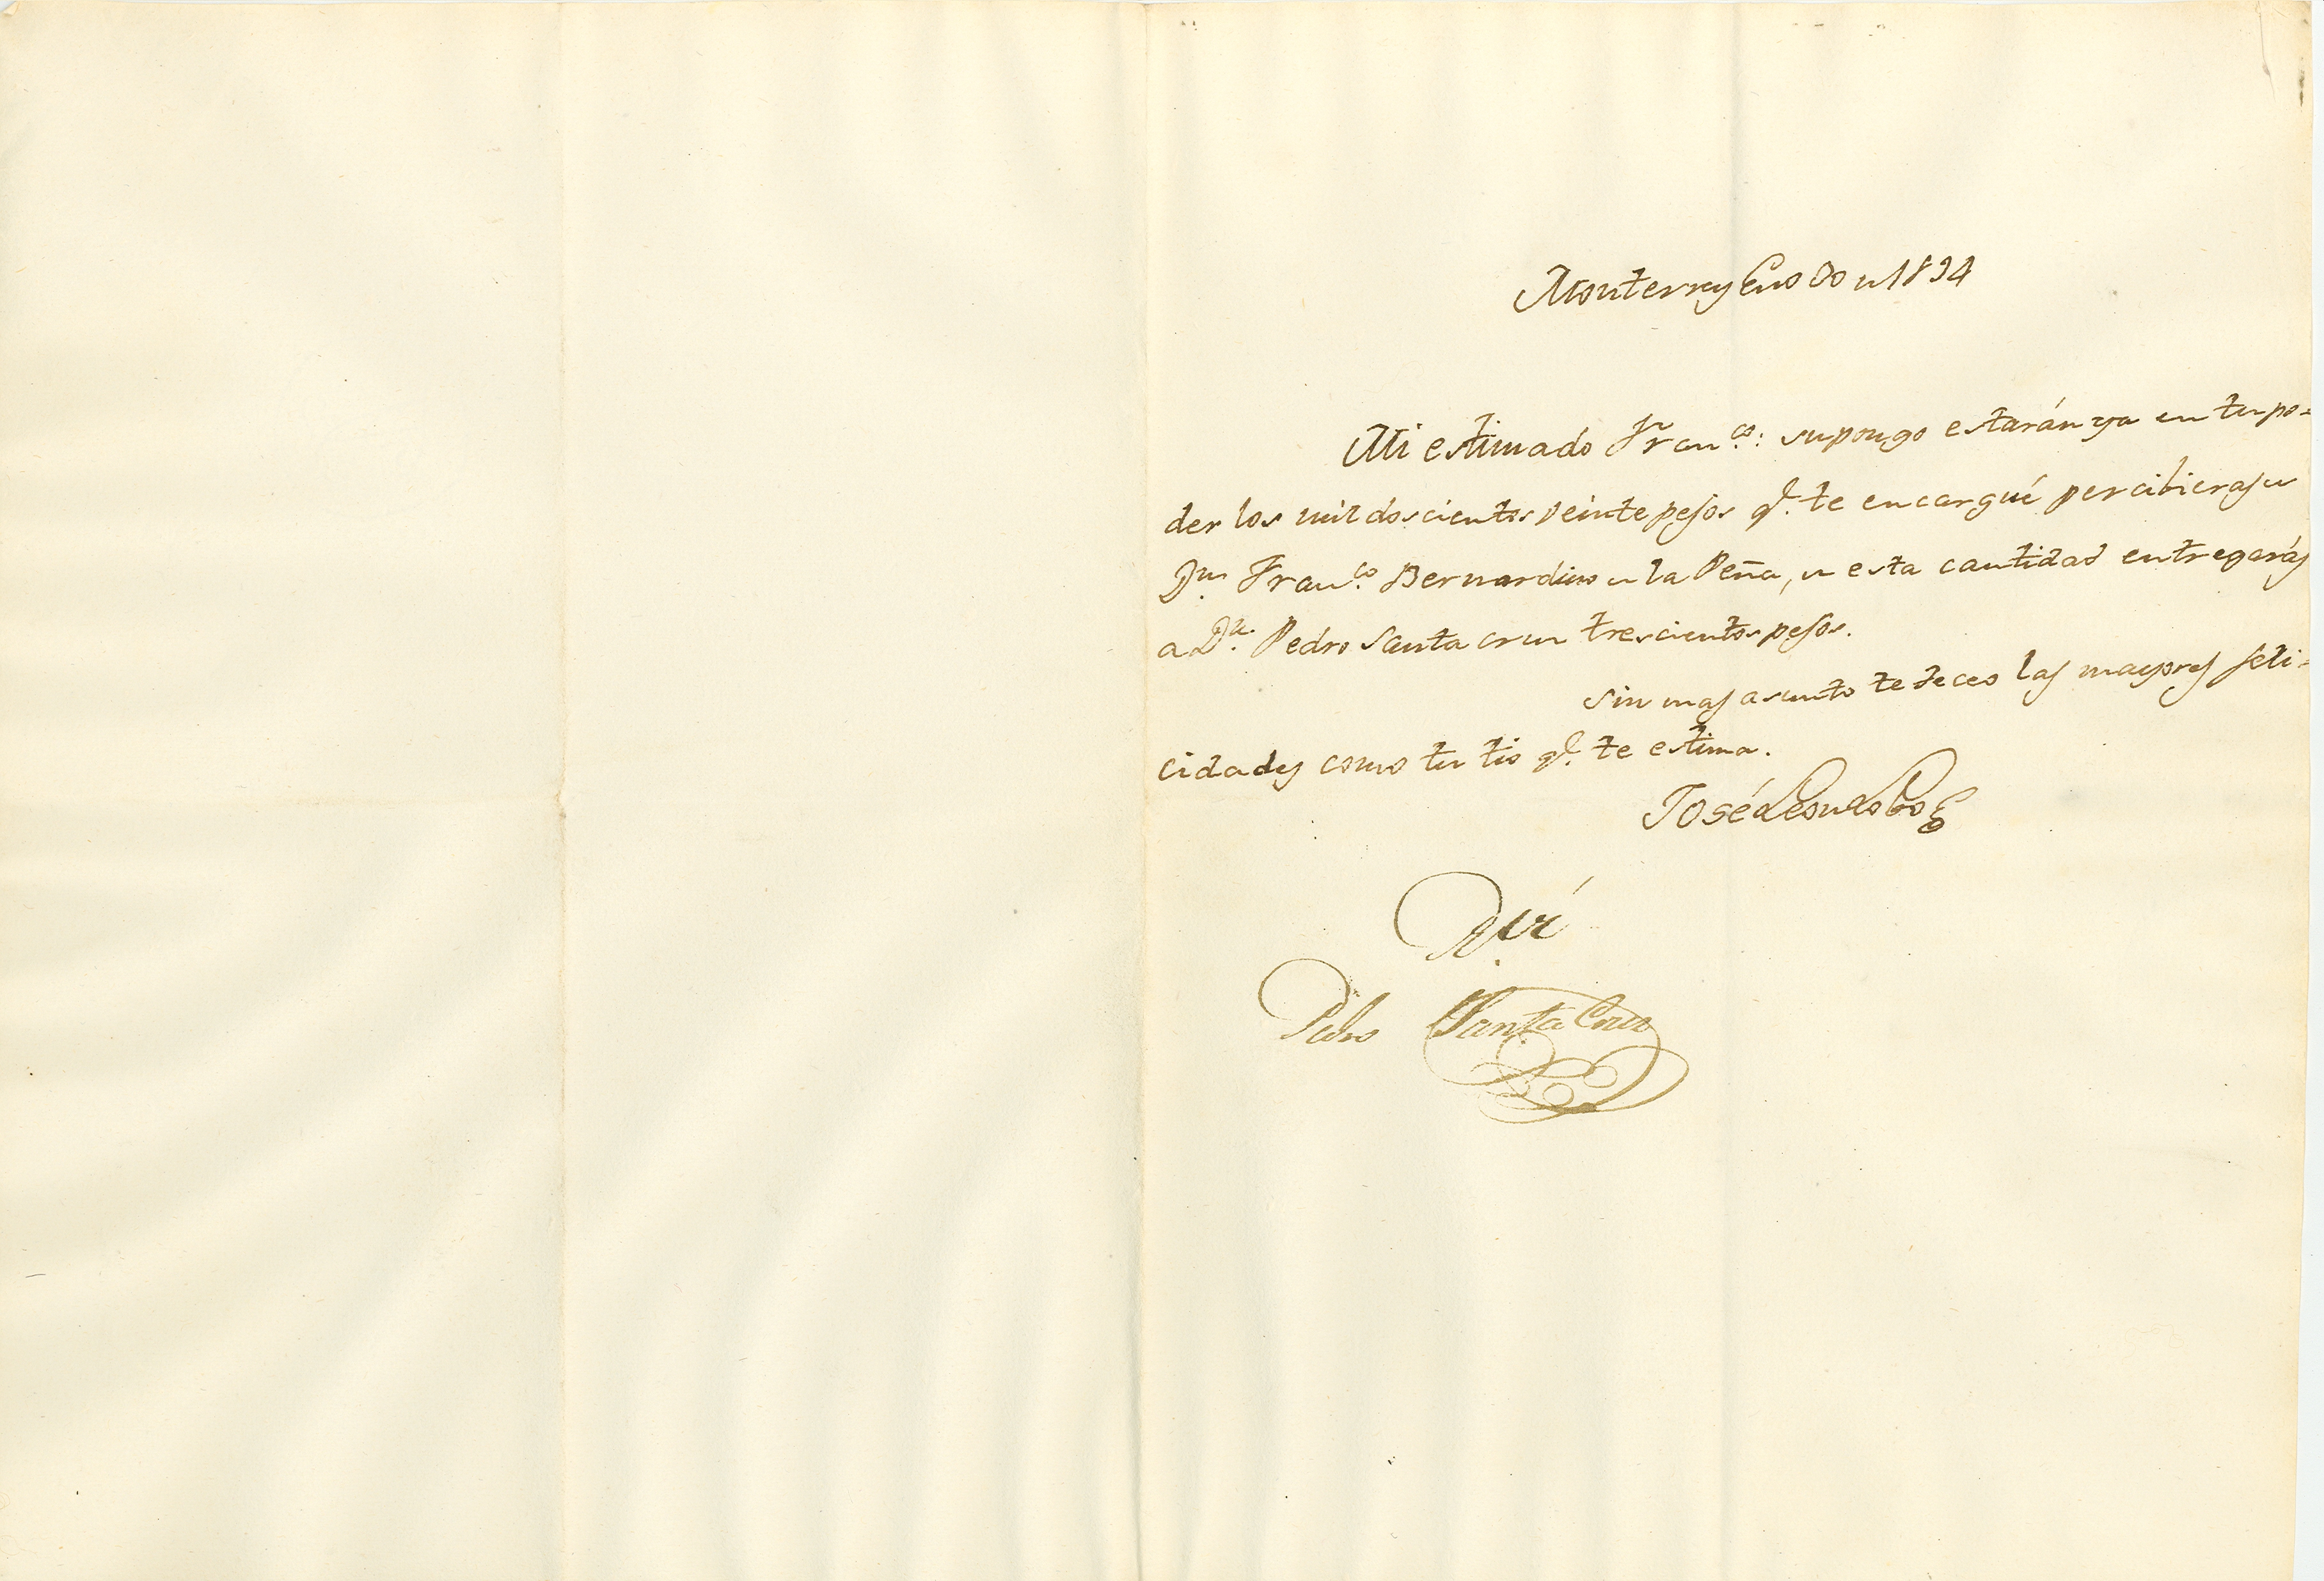 Monterrey Eno de 1834
Mi estimado Franco: supongo estarán ya en tu po-
der los mil doscientos veinte pesos q.e te encargué percibieras de
Dn. Franco. Bernardino de la Peña, de esta cantidad entregarás
a Dn. Pedro Santa cruz trescientos pesos.
Sin mas asunto te deceo las mayores feli-
cidades como tu tio q.e te estima.
José León Lobo
Rcví
Pedro Santa Cruz